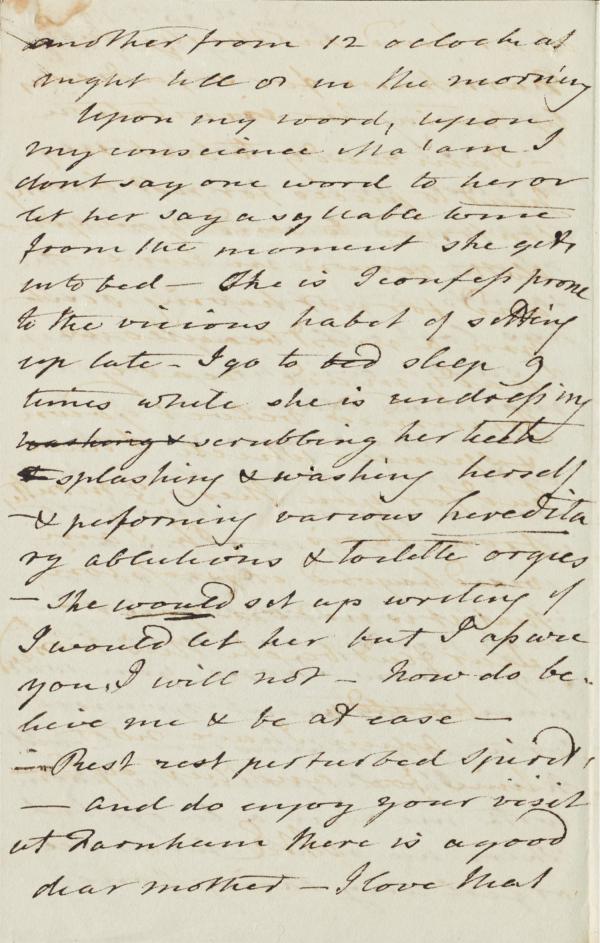 another from 12 oclock at
night till 8 in the morning
Upon my word, upon
my conscience Ma'am I
dont say one word to her or
let her say a syllable to me
from the moment she gets
into bed — She is I confess prone
to the vicious habit of sitting
up late – I go to bed sleep 9
times while she is undressing
washing & scrubbing her teeth
& splashing & washing herself
– & performing various heredita
ry ablutions & toilette orgies
– She would sit up writing if
I would let her but I assure
you, I will not – Now do be-
lieve me & be at ease –
– Rest rest perturbed Spirit,
— and do enjoy your visit
at Farnham there is a good
dear mother – I love that